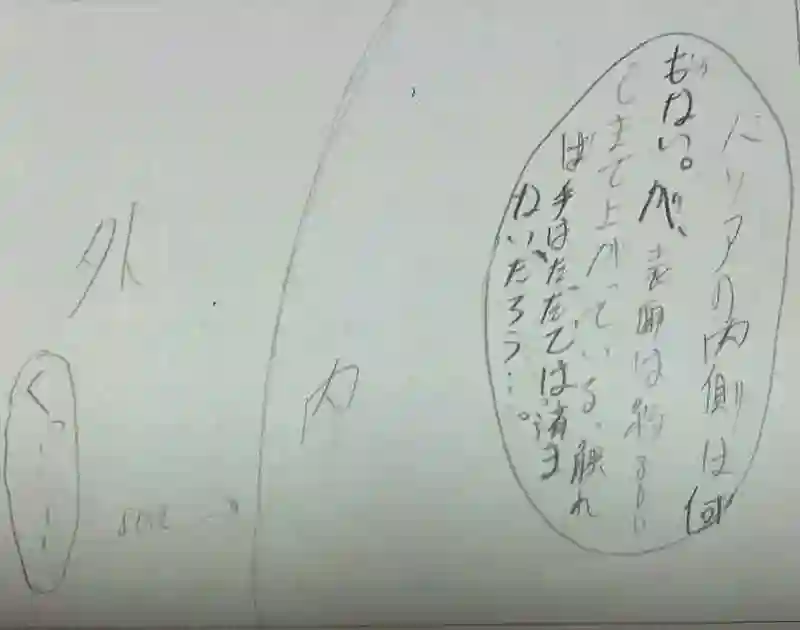 バリアの内側は何
もない。が、表面は約800
℃まで上がっている、触れ
ば手はただでは済ま
ないだろう…。
内
外
くっ……